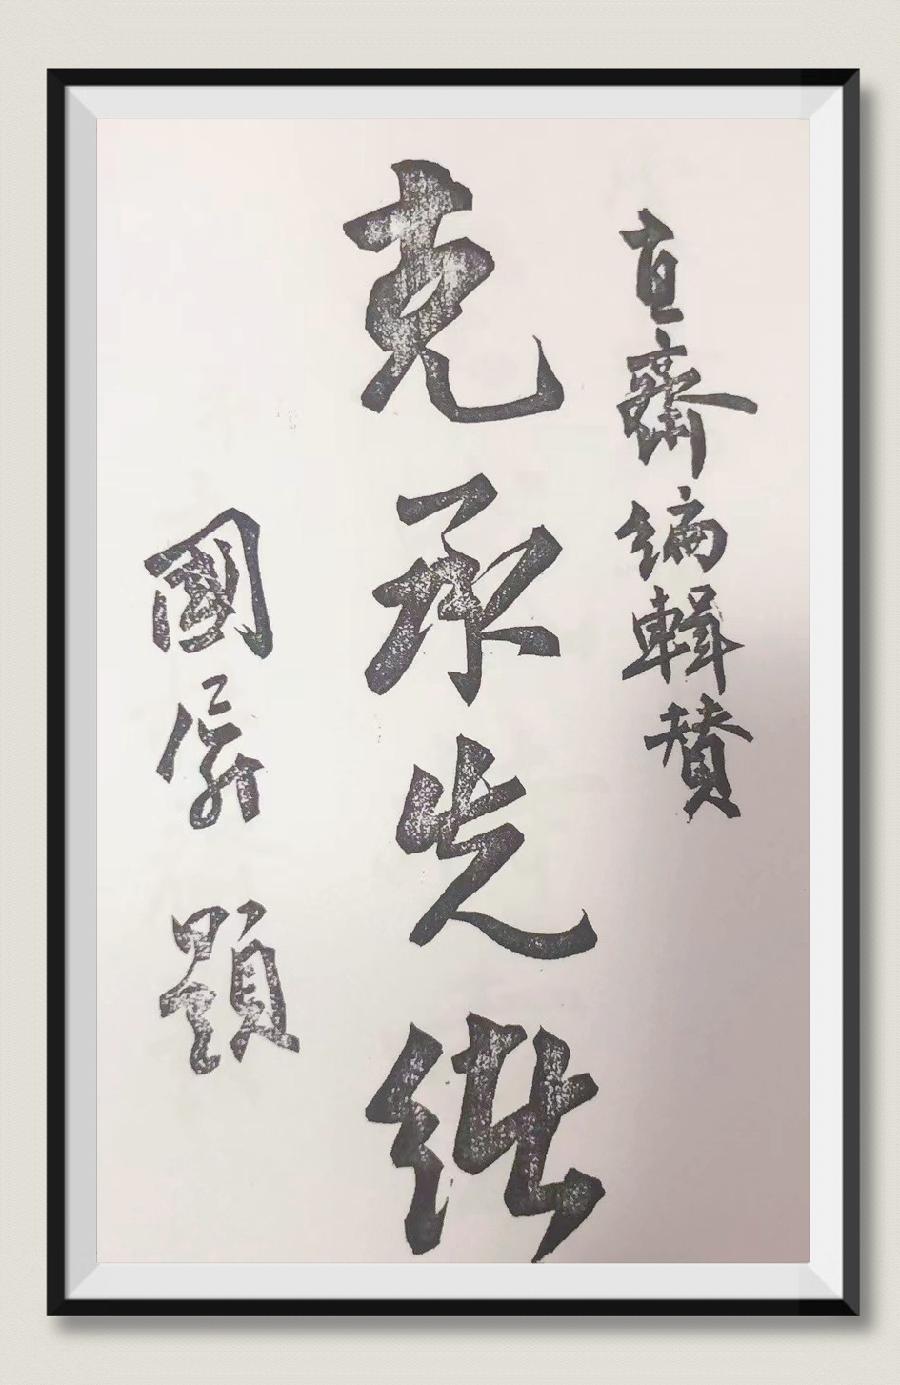 直齋編輯贊
克承先
國題